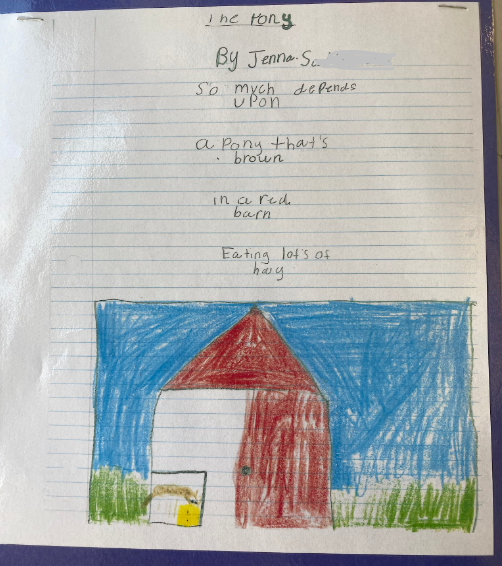 The Pony
By Jenna S
So much depends
upon
a Pony that's
brown
in a red
barn
Eating lot's of
hay